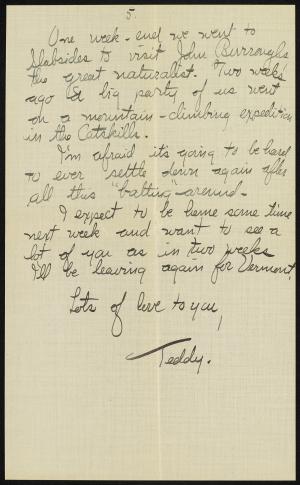 5.
One week-end we went to
Slabsides to visit John Burroughs
the great naturalist. Two weeks
ago a big party of us went
on a mountain-climbing expedition
in the Catskills.
I'm afraid it's going to be hard
to ever settle down again after
all this "batting"-around-
I expect to be home some time
next week and want to see a
lot of you as in two weeks
I'll be leaving again for Vermont.
Lots of love to you,
Teddy.